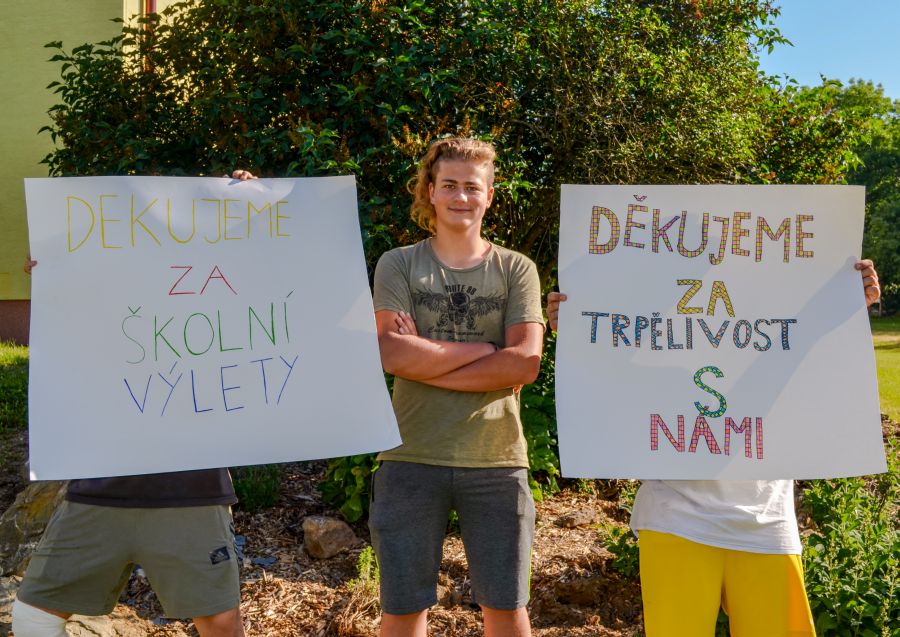 DEKUJEME
ZA
ŠKOLNÍ
VÝLETY
DĚKUJEME
ZA
TRPĚLIVOST
S
NÁMI